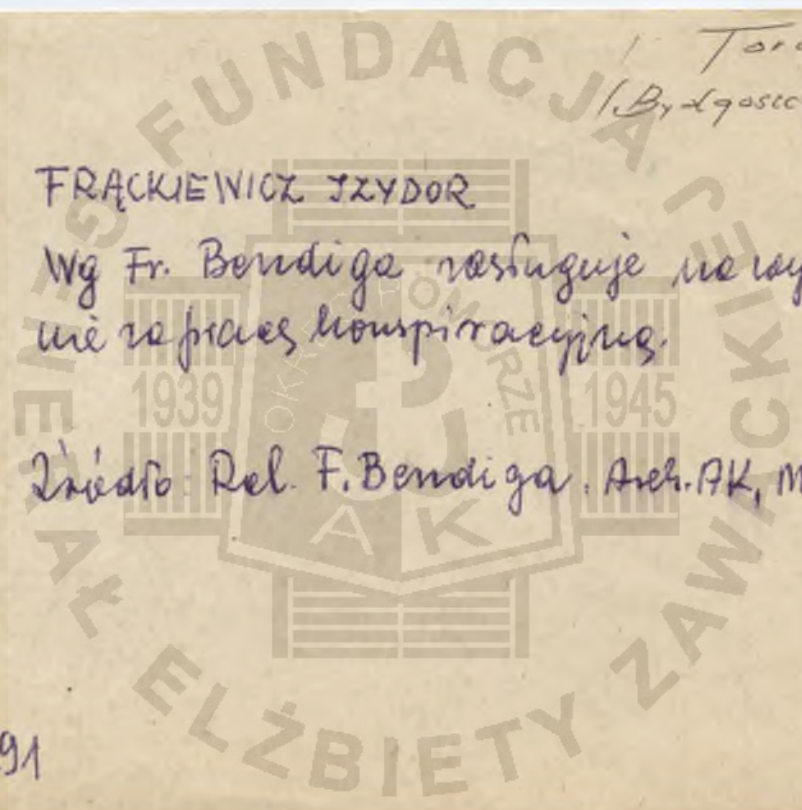 Toru
/Bydgoszcz
FRĄCKIEWICZ IZYDOR
Wg Fr. Bendiga zasługuje na wy
nie za pracę konspiracyjną.
Źródło: Rel. F. Bendiga, Arch. AK, M
91
FUNDACJA GENERAŁ ELŻBIETY ZAWACKIEJ
OKRĘG POMORZE
1939
1945
AK